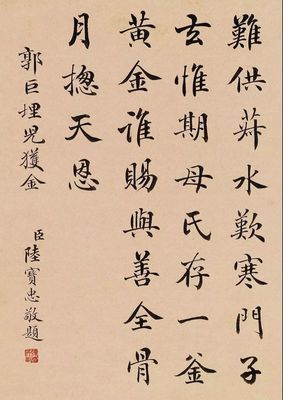 難供菽水歎寒門子
去惟期母氏存一釜
黃金誰賜與善全骨
月揔天恩
郭巨埋兒獲金
臣陸寶忠敬題